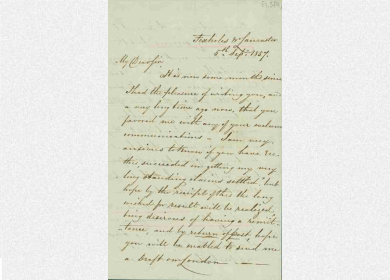 Foxholes Nr Lancaster
5th Sept. 1857.
My Dear Sir
It is now some months since
I had the pleasure of writing you, and
a very long time ago now, that you
favored me with any of your welcome
communications. I am very
anxious to know if you have
succeeded in getting my very
long standing claims settled, but
hope by the receipt of this the long
wished for result will be realized,
being desirous of having a remit-
tance, and by return of post, hope
you will be enabled to send me
a Draft on London.